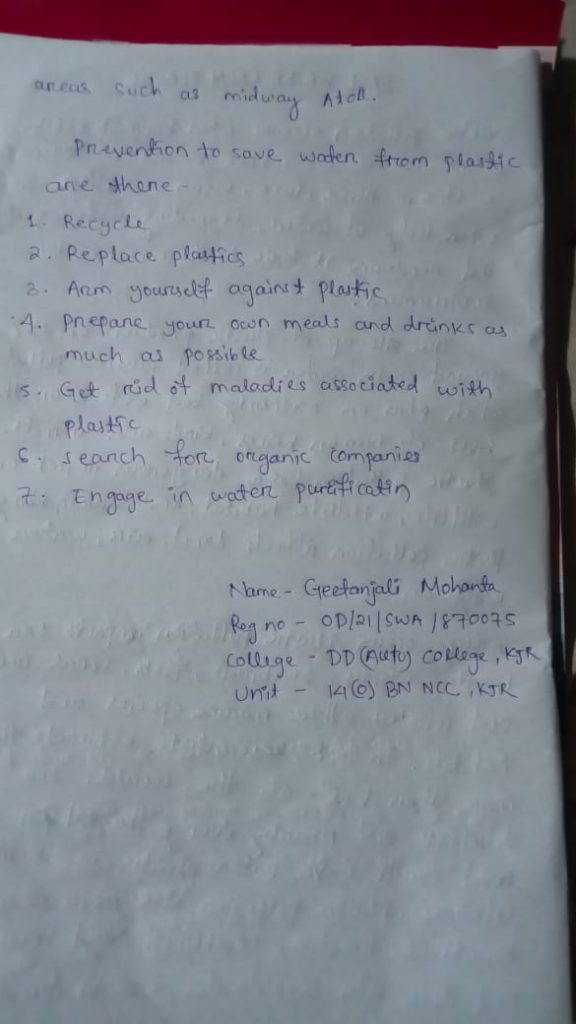 areas such as midway Atoll.
Prevention to save water from plastic
are there -
1. Recycle
2. Replace plastics
3. Arm yourself against plastic
4. Prepare your own meals and drinks as
much as possible
5. Get rid of maladies associated with
plastic
6. search for organic companies
7. Engage in water purificatin
Name - Geetanjali Mohanta
Reg no - OD/21/SWA/870075
College - DD (Auto) College, KJR
Unit - 14(O) BN NCC, KJR